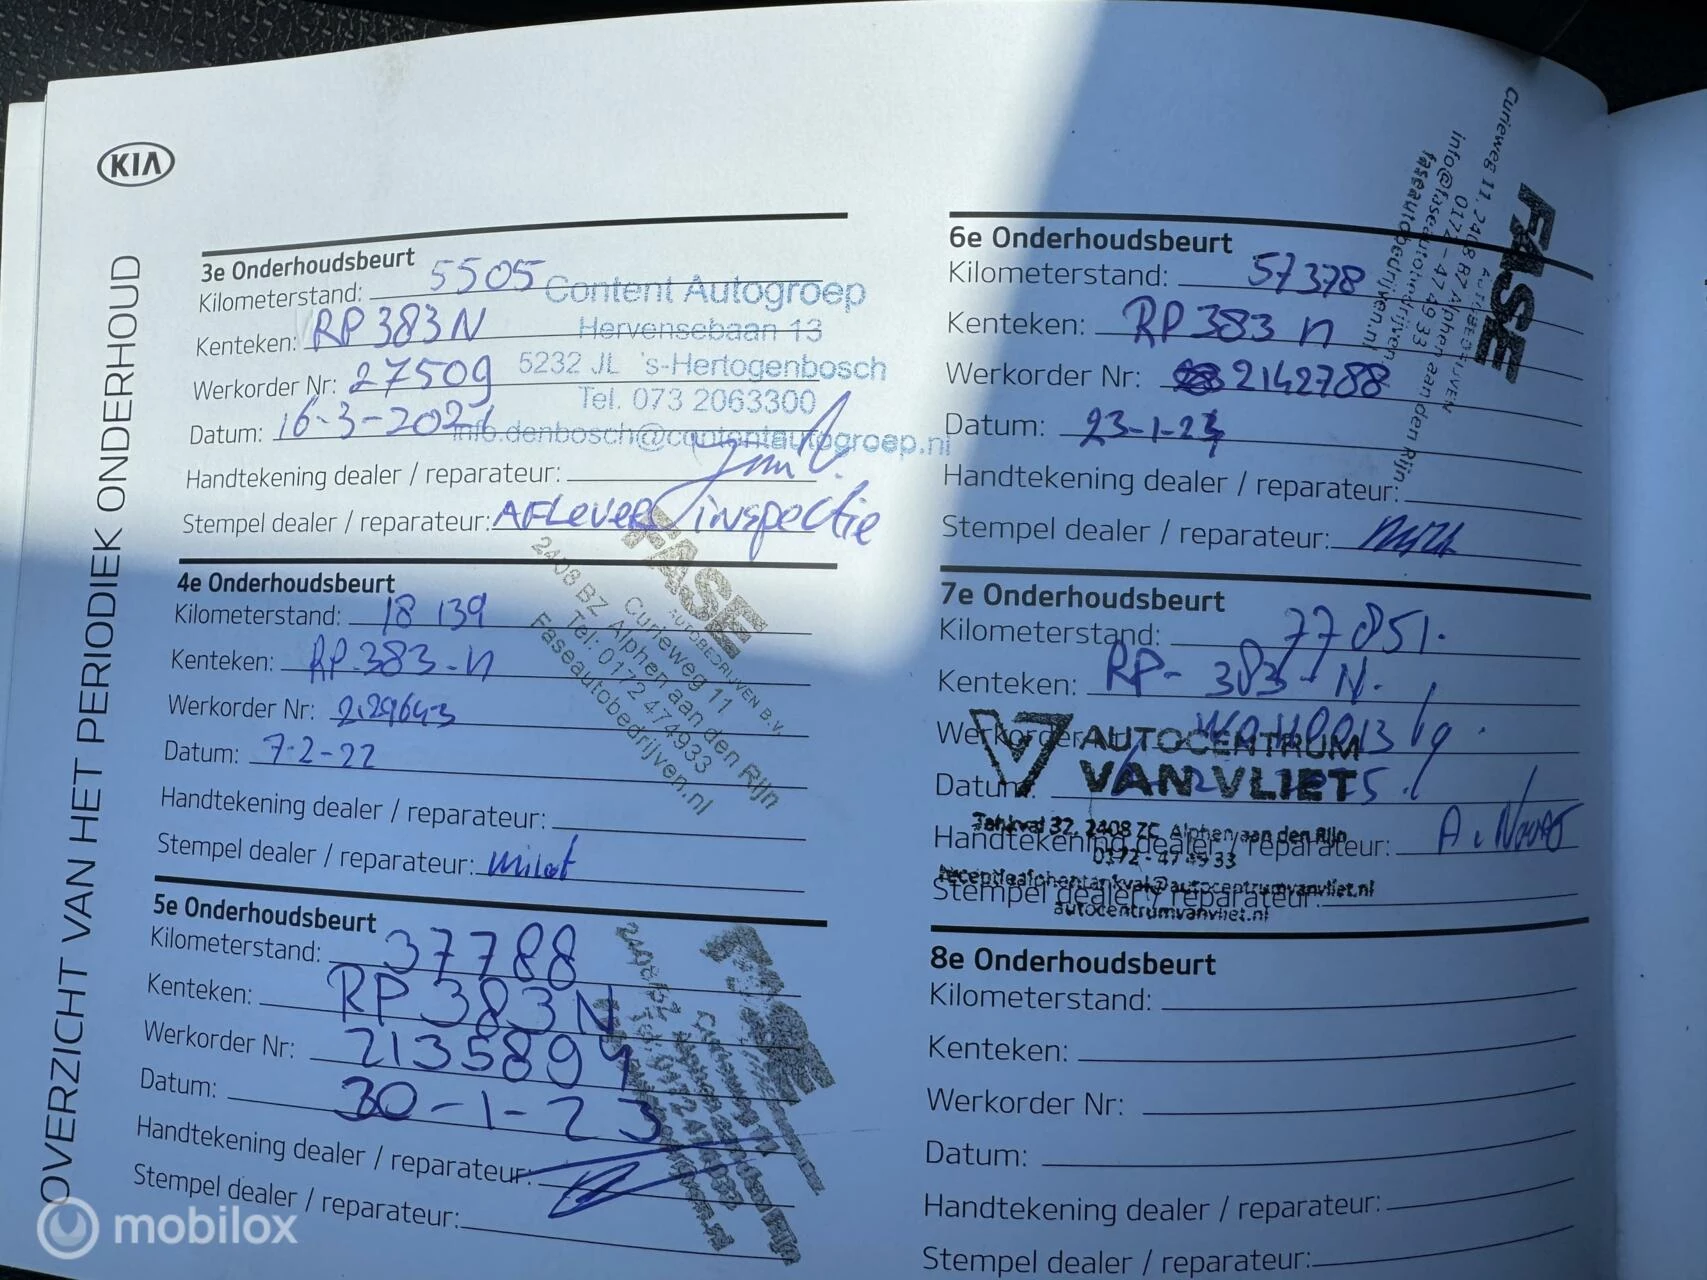 KIA
OVERZICHT VAN HET PERIODIEK ONDERHOUD
3e Onderhoudsbeurt
Kilometerstand: 5505
Kenteken: RP 383 N
Werkorder Nr: 27509
Datum: 16-3-2021
Handtekening dealer / reparateur:
Stempel dealer / reparateur: AFLEVER inspectie
Content Autogroep
Hervensebaan 13
5232 JL 's-Hertogenbosch
Tel. 073 2063300
info.denbosch@contentautogroep.nl
4e Onderhoudsbeurt
Kilometerstand: 18 139
Kenteken: RP-383-N
Werkorder Nr: 2129643
Datum: 7-2-22
Handtekening dealer / reparateur:
Stempel dealer / reparateur:
FASE
AUTOBEDRIJVEN B.V.
Curieweg 11
2408 BZ Alphen aan den Rijn
Tel: 0172 474933
Faseautobedrijven.nl
5e Onderhoudsbeurt
Kilometerstand: 37788
Kenteken: RP 383 N
Werkorder Nr: 2135894
Datum: 30-1-23
Handtekening dealer / reparateur:
Stempel dealer / reparateur:
6e Onderhoudsbeurt
Kilometerstand: 57378
Kenteken: RP 383 n
Werkorder Nr: 2142788
Datum: 23-1-24
Handtekening dealer / reparateur:
Stempel dealer / reparateur:
FASE
AUTOBEDRIJVEN
Curieweg 11, 2408 BZ Alphen aan den Rijn
0172-474933
info@faseautobedrijven.nl
faseautobedrijven.nl
7e Onderhoudsbeurt
Kilometerstand: 77851.
Kenteken: RP-383-N.
Werkorder Nr:
Datum:
Handtekening dealer / reparateur:
Stempel dealer / reparateur:
AUTOCENTRUM
VAN VLIET
Tankval 32, 2408 ZC Alphen aan den Rijn
0172-474933
receptiealphentankval@autocentrumvanvliet.nl
autocentrumvanvliet.nl
8e Onderhoudsbeurt
Kilometerstand:
Kenteken:
Werkorder Nr:
Datum:
Handtekening dealer / reparateur:
Stempel dealer / reparateur:
mobilox